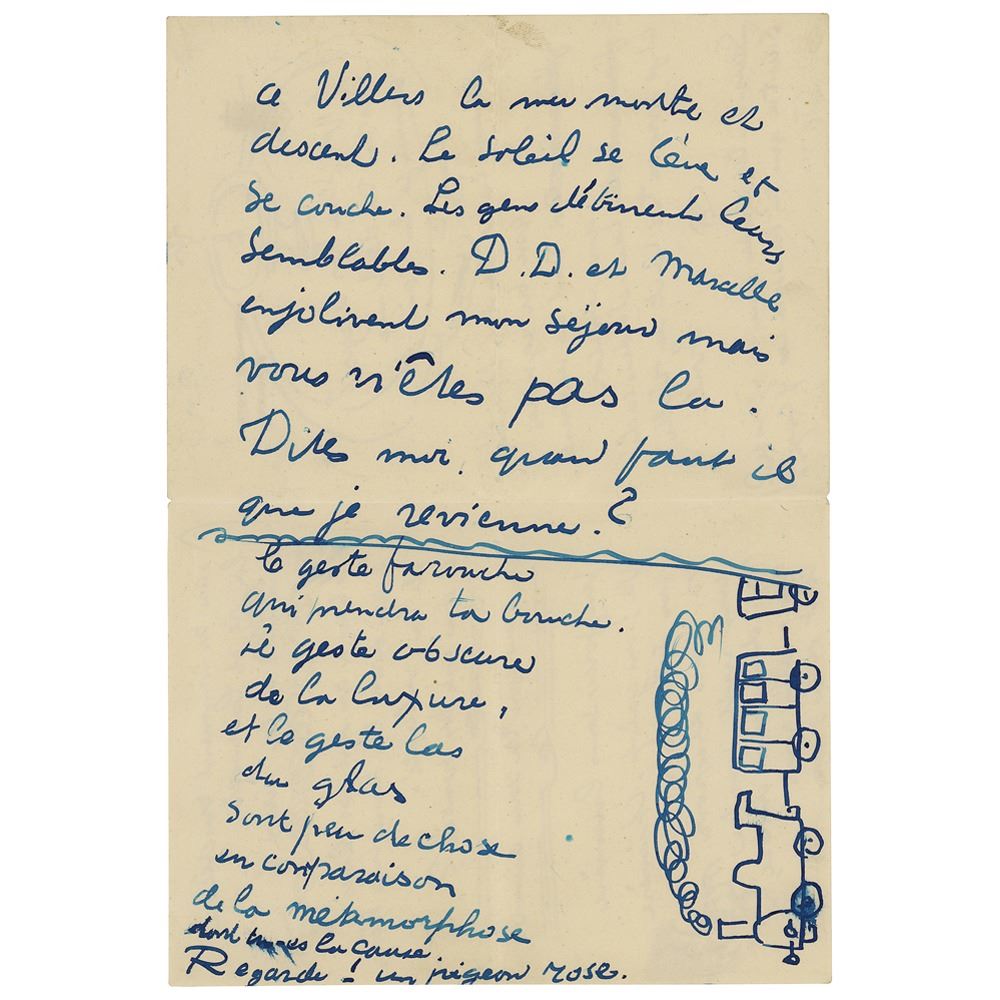 a Villers la mer monte et
descend. Le soleil se lève et
se couche. Les gens débinent leurs
semblables. D.D. et Marcelle
enjolivent mon séjour mais
vous n'êtes pas la.
Dites moi, quand faut il
que je revienne?
le geste farouche
qui prendra ta bouche.
Le geste obscure
de la luxure,
et le geste las
du glas
sont peu de chose
en comparaison
de la métamorphose
dont tu es la cause.
Regarde! un pigeon rose.